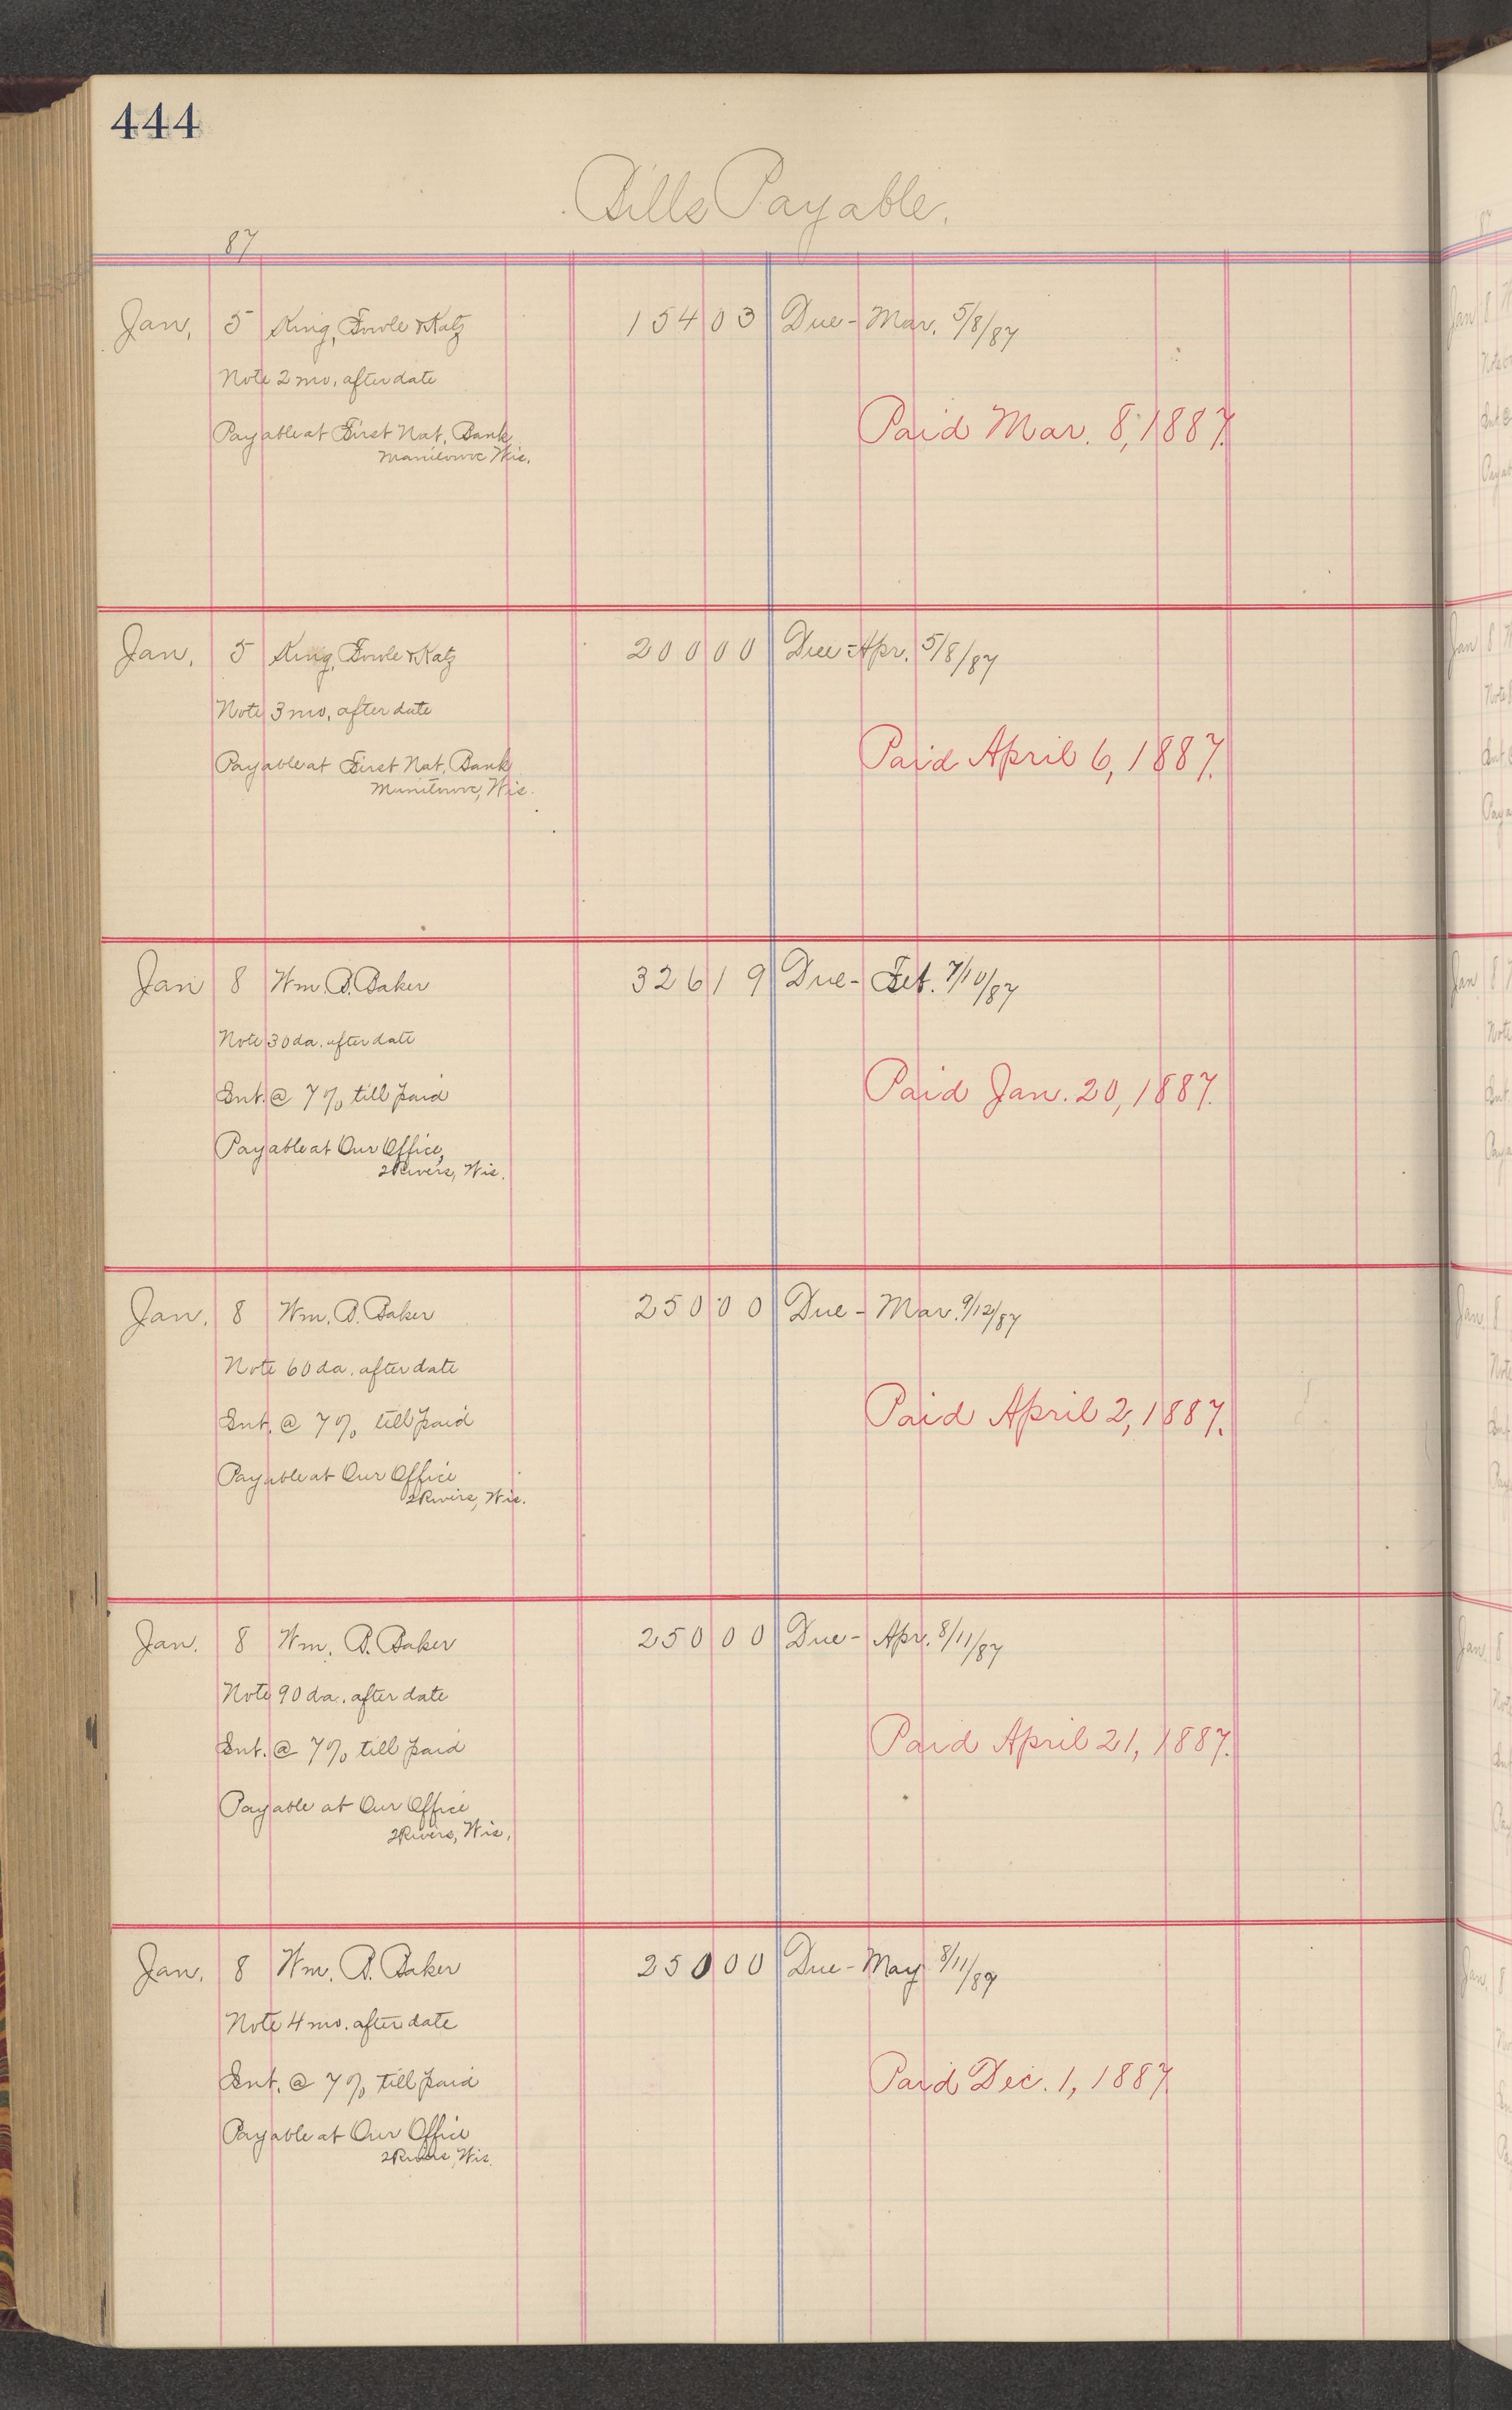 444
Bills Payable.
87
Jan. 5 King, Fowle & Katz 154 03 Due - Mar. 5/8/87
Note 2 mo. after date
Paid Mar. 8, 1887.
Payable at First Nat. Bank
Manitowoc Wis.
Jan. 5 King, Fowle & Katz 200 00 Due - Apr. 5/8/87
Note 3 mo. after date
Paid April 6, 1887.
Payable at First Nat. Bank
Manitowoc, Wis.
Jan 8 Wm. B. Baker 326 19 Due - Feb. 7/10/87
Note 30 da. after date
Int. @ 7% till paid
Paid Jan. 20, 1887.
Payable at Our Office,
2Rivers, Wis.
Jan. 8 Wm. B. Baker 250 00 Due - Mar. 9/12/87
Note 60 da. after date
Int. @ 7% till paid
Paid April 2, 1887.
Payable at Our Office
2Rivers, Wis.
Jan. 8 Wm. B. Baker 250 00 Due - Apr. 8/11/87
Note 90 da. after date
Int. @ 7% till paid
Paid April 21, 1887.
Payable at Our Office
2Rivers, Wis.
Jan. 8 Wm. B. Baker 250 00 Due - May 8/11/87
Note 4 mo. after date
Int. @ 7% till paid
Paid Dec. 1, 1887
Payable at Our Office
2Rivers, Wis.